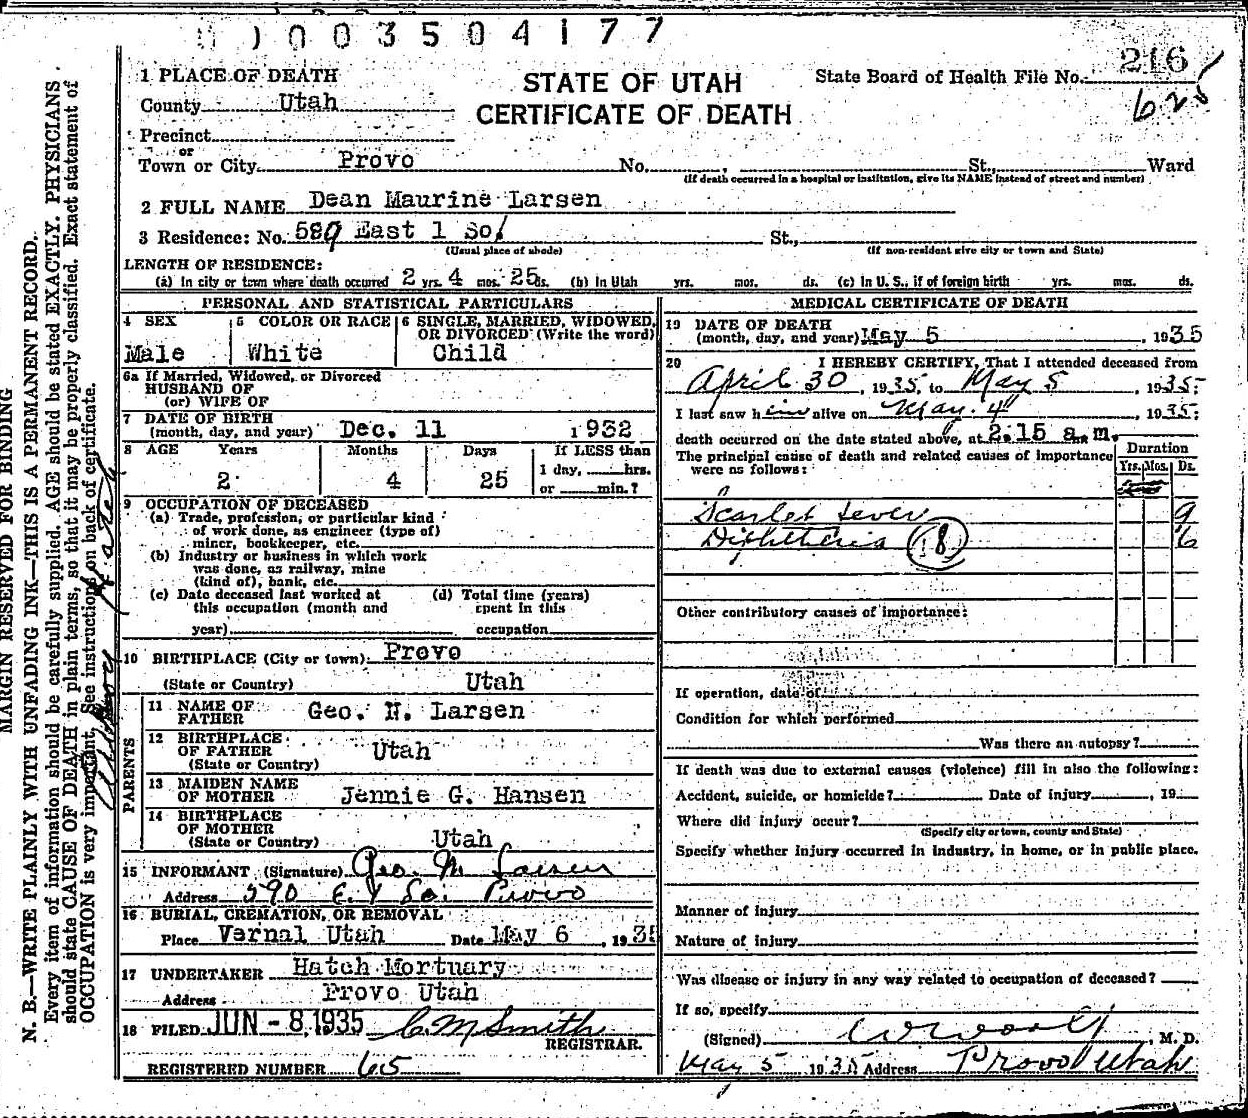 0003504177
216
625
1 PLACE OF DEATH
STATE OF UTAH
CERTIFICATE OF DEATH
State Board of Health File No.
County Utah
Precinct
or
Town or City Provo No. St., Ward
(If death occurred in a hospital or institution, give its NAME instead of street and number)
2 FULL NAME Dean Maurine Larsen
3 Residence: No. 589 East 1 So. St.,
(Usual place of abode) (If non-resident give city or town and State)
LENGTH OF RESIDENCE:
(a) In city or town where death occurred 2 yrs. 4 mos. 25 ds. (b) In Utah yrs. mos. ds. (c) In U. S., if of foreign birth yrs. mos. ds.
PERSONAL AND STATISTICAL PARTICULARS
4 SEX
Male
5 COLOR OR RACE
White
6 SINGLE, MARRIED, WIDOWED, OR DIVORCED (Write the word)
Child
6a If Married, Widowed, or Divorced
HUSBAND OF
(or) WIFE OF
7 DATE OF BIRTH
(month, day, and year) Dec. 11 1932
8 AGE Years Months Days If LESS than
2 4 25 1 day, hrs.
or min.?
9 OCCUPATION OF DECEASED
(a) Trade, profession, or particular kind
of work done, as engineer (type of)
miner, bookkeeper, etc.
(b) Industry or business in which work
was done, as railway, mine
(kind of), bank, etc.
(c) Date deceased last worked at
this occupation (month and
year)
(d) Total time (years)
spent in this
occupation
10 BIRTHPLACE (City or town) Provo
(State or Country) Utah
PARENTS
11 NAME OF
FATHER Geo. M. Larsen
12 BIRTHPLACE
OF FATHER Utah
(State or Country)
13 MAIDEN NAME
OF MOTHER Jennie G. Hansen
14 BIRTHPLACE
OF MOTHER
(State or Country) Utah
15 INFORMANT (Signature) Geo. M. Larsen
Address 590 E. 1 So. Provo
16 BURIAL, CREMATION, OR REMOVAL
Place Vernal Utah Date May 6, 1935
17 UNDERTAKER Hatch Mortuary
Address Provo Utah
18 FILED JUN - 8 1935 C. M. Smith
REGISTRAR.
REGISTERED NUMBER 65
MEDICAL CERTIFICATE OF DEATH
19 DATE OF DEATH
(month, day, and year) May 5, 1935
20 I HEREBY CERTIFY, That I attended deceased from
April 30, 1935, to May 5, 1935;
I last saw him alive on May 4, 1935;
death occurred on the date stated above, at 2:15 a.m.
The principal cause of death and related causes of importance
were as follows:
Duration
Yrs. Mos. Ds.
Scarlet fever 9
Diphtheria 8 6
Other contributory causes of importance:
If operation, date of
Condition for which performed
Was there an autopsy?
If death was due to external causes (violence) fill in also the following:
Accident, suicide, or homicide? Date of injury, 19
Where did injury occur?
(Specify city or town, county and State)
Specify whether injury occurred in industry, in home, or in public place.
Manner of injury
Nature of injury
Was disease or injury in any way related to occupation of deceased?
If so, specify
(Signed), M. D.
May 5 1935 Address Provo Utah
MARGIN RESERVED FOR BINDING
N. B.—WRITE PLAINLY WITH UNFADING INK—THIS IS A PERMANENT RECORD.
Every item of information should be carefully supplied. AGE should be stated EXACTLY. PHYSICIANS
should state CAUSE OF DEATH in plain terms, so that it may be properly classified. Exact statement of
OCCUPATION is very important. See instructions on back of certificate.